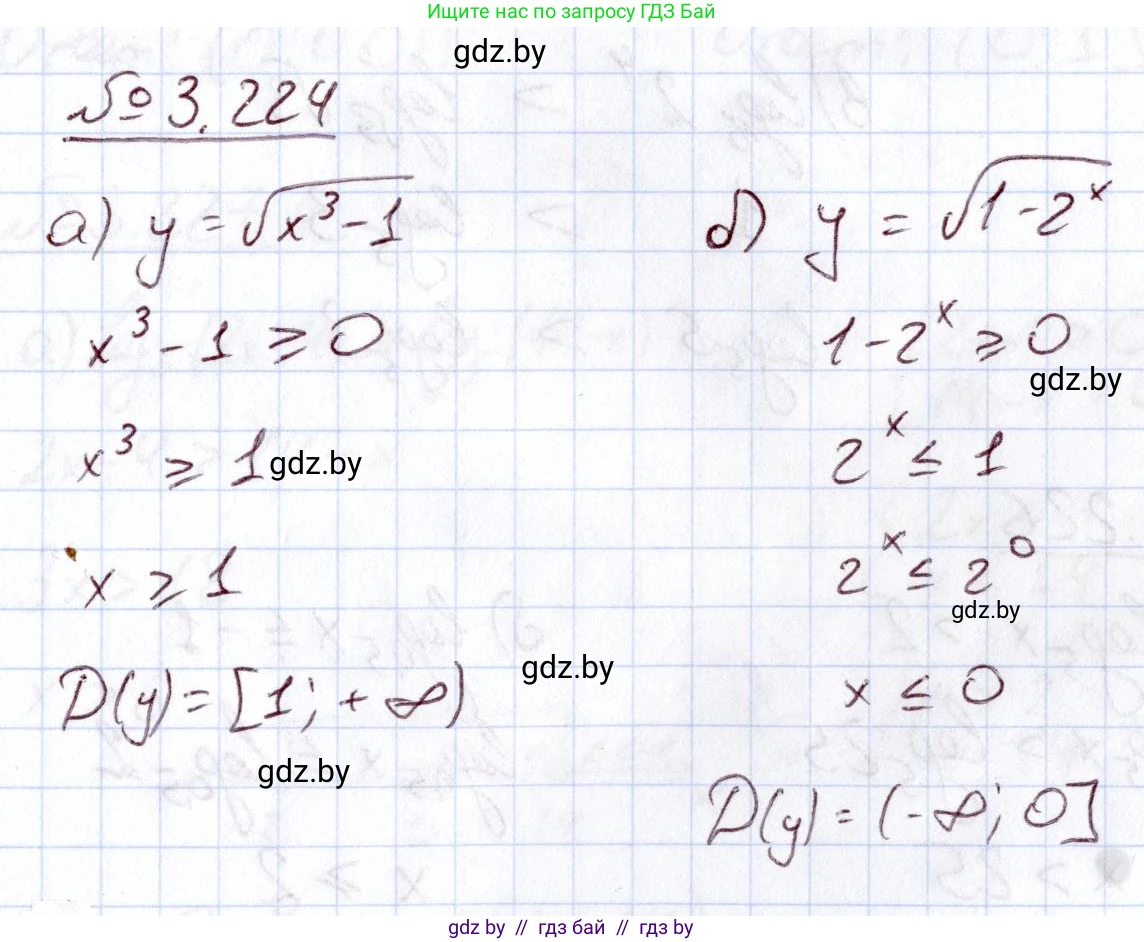 Ищите нас по запросу ГДЗ Бай
gdz.by
№ 3. 224
а) y = √(x³ - 1)
x³ - 1 ⩾ 0
x³ ⩾ 1 gdz.by
x ⩾ 1
D(y) = [1; + ∞)
gdz.by
gdz.by
б) y = √(1 - 2ˣ)
1 - 2ˣ ⩾ 0
gdz.by
2ˣ ≤ 1
2ˣ ≤ 2⁰
gdz.by
x ≤ 0
D(y) = (-∞; 0]
gdz.by // гдз бай // гдз by